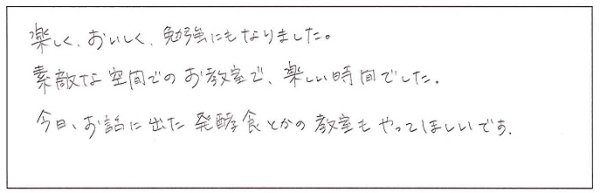 楽しく、おいしく、勉強にもなりました。
素敵な空間でのお教室で、楽しい時間でした。
今日、お話に出た発酵食とかの教室もやってほしいです.